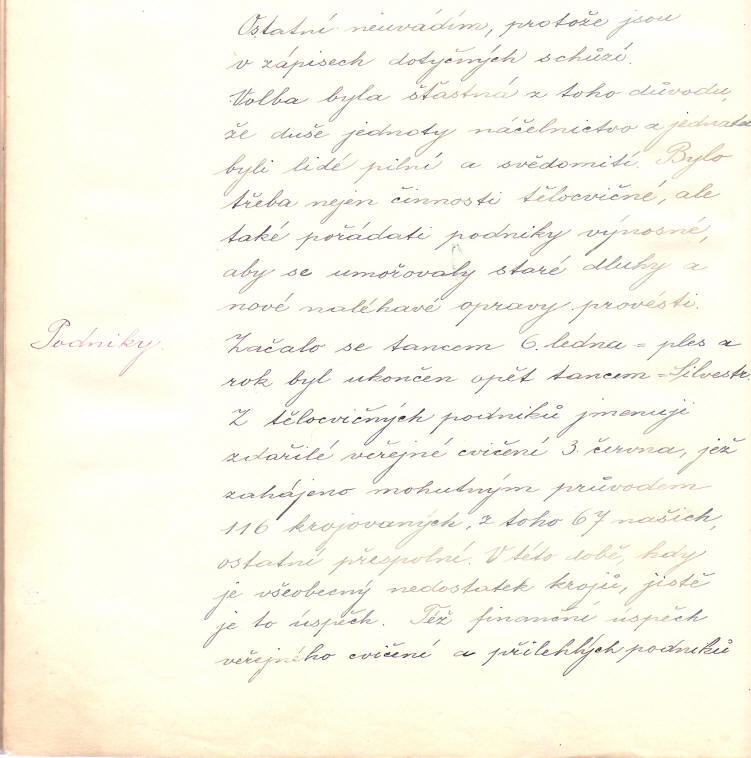 Ostatní neuvádím, protože jsou
v zápisech dotyčných schůzí.
Volba byla šťastná z toho důvodu,
že duše jednoty náčelnictvo a jednatel
byli lidé pilní a svědomití. Bylo
třeba nejen činnosti tělocvičné, ale
také pořádati podniky výnosné,
aby se umořovaly staré dluhy a
nové naléhavé opravy provésti.
Podniky.
Začalo se tancem 6. ledna = ples a
rok byl ukončen opět tancem = Silvestr.
Z tělocvičných podniků jmenuji
zdařilé veřejné cvičení 3. června, jež
zahájeno mohutným průvodem
116 krojovaných, z toho 67 našich,
ostatní přespolní. V této době, kdy
je všeobecný nedostatek krojů, jistě
je to úspěch. Též finanční úspěch
veřejného cvičení a přilehlých podniků